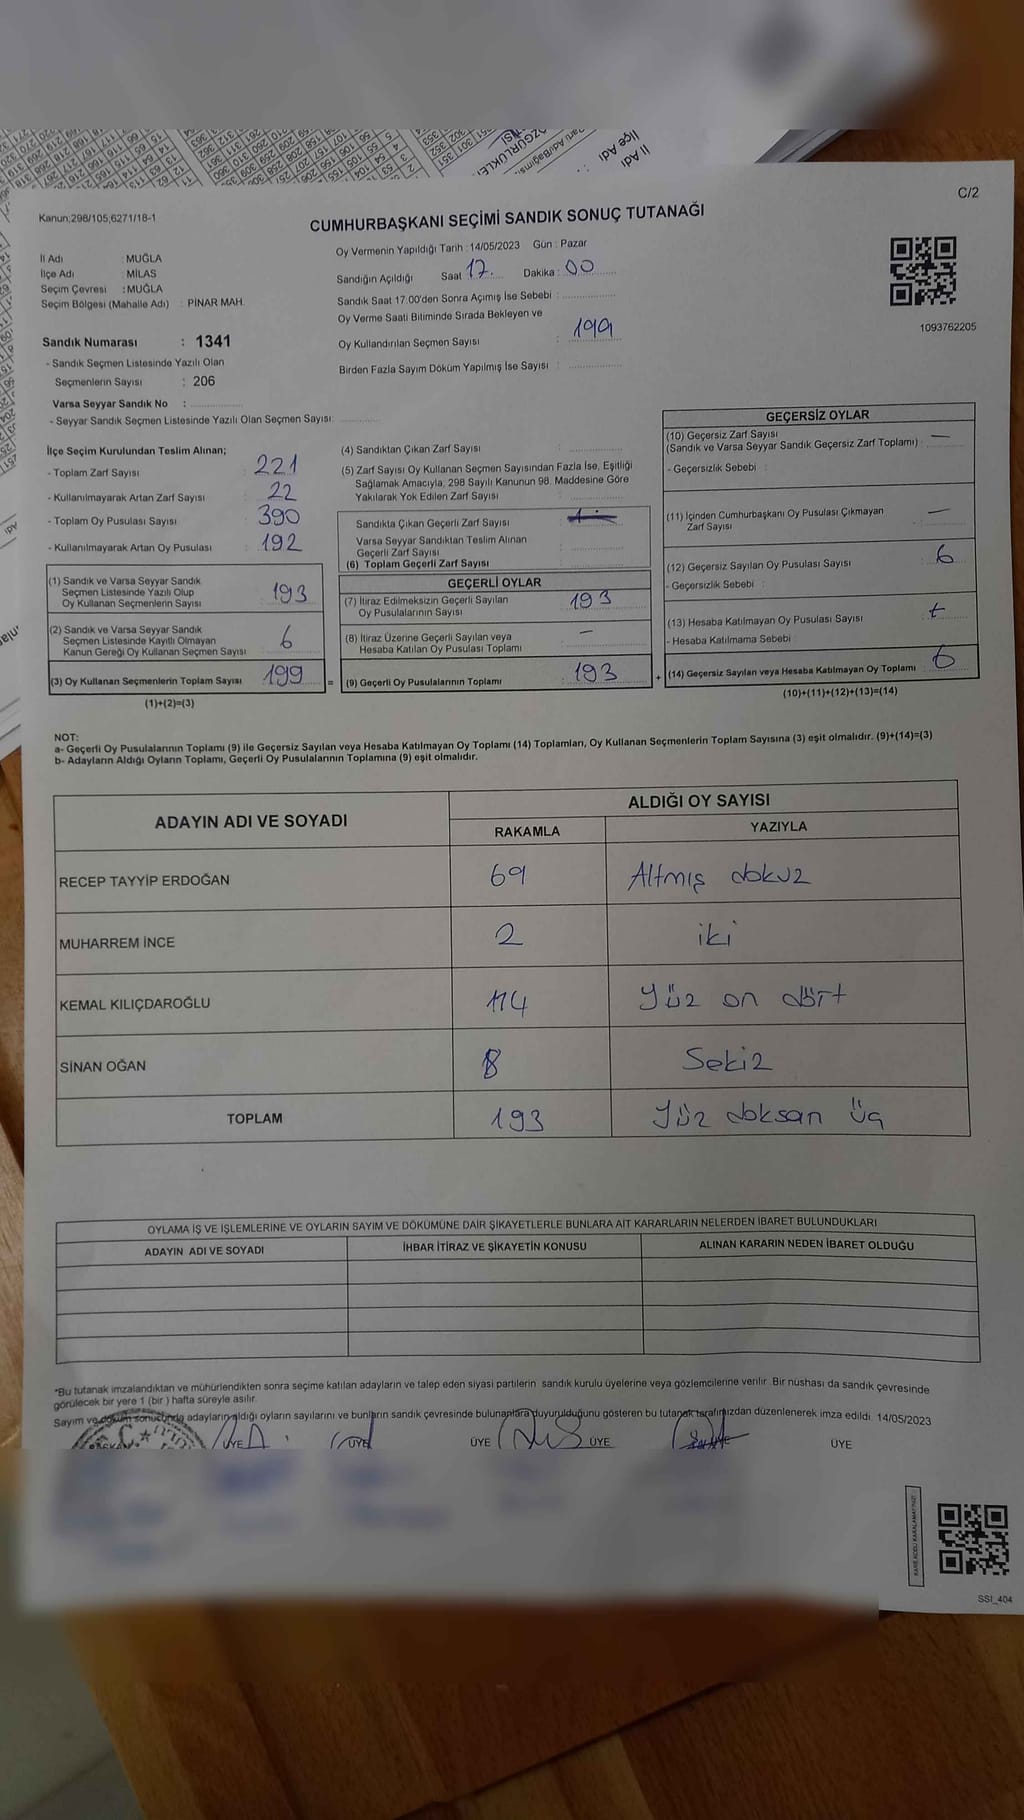 C/2
Kanun;298/105;6271/18-1
CUMHURBAŞKANI SEÇİMİ SANDIK SONUÇ TUTANAĞI
Oy Vermenin Yapıldığı Tarih :14/05/2023 Gün : Pazar
İl Adı : MUĞLA
İlçe Adı : MİLAS
Seçim Çevresi : MUĞLA
Seçim Bölgesi (Mahalle Adı) : PİNAR MAH.
Sandığın Açıldığı Saat 17. Dakika : 00
Sandık Saat 17.00'den Sonra Açımış İse Sebebi :
Oy Verme Saati Bitiminde Sırada Bekleyen ve
Oy Kullandırılan Seçmen Sayısı : 199
Birden Fazla Sayım Döküm Yapılmış İse Sayısı :
1093762205
Sandık Numarası : 1341
- Sandık Seçmen Listesinde Yazılı Olan
Seçmenlerin Sayısı : 206
Varsa Seyyar Sandık No :
- Seyyar Sandık Seçmen Listesinde Yazılı Olan Seçmen Sayısı:
İlçe Seçim Kurulundan Teslim Alınan;
- Toplam Zarf Sayısı : 221
- Kullanılmayarak Artan Zarf Sayısı : 22
- Toplam Oy Pusulası Sayısı : 390
- Kullanılmayarak Artan Oy Pusulası : 192
(1) Sandık ve Varsa Seyyar Sandık
Seçmen Listesinde Yazılı Olup
Oy Kullanan Seçmenlerin Sayısı : 193
(2) Sandık ve Varsa Seyyar Sandık
Seçmen Listesinde Kayıtlı Olmayan
Kanun Gereği Oy Kullanan Seçmen Sayısı : 6
(3) Oy Kullanan Seçmenlerin Toplam Sayısı : 199
(1)+(2)=(3)
=
(4) Sandıktan Çıkan Zarf Sayısı :
(5) Zarf Sayısı Oy Kullanan Seçmen Sayısından Fazla İse, Eşitliği
Sağlamak Amacıyla, 298 Sayılı Kanunun 98. Maddesine Göre
Yakılarak Yok Edilen Zarf Sayısı :
Sandıkta Çıkan Geçerli Zarf Sayısı :
Varsa Seyyar Sandıktan Teslim Alınan
Geçerli Zarf Sayısı :
(6) Toplam Geçerli Zarf Sayısı :
GEÇERLİ OYLAR
(7) İtiraz Edilmeksizin Geçerli Sayılan
Oy Pusulalarının Sayısı : 193
(8) İtiraz Üzerine Geçerli Sayılan veya
Hesaba Katılan Oy Pusulası Toplamı : —
(9) Geçerli Oy Pusulalarının Toplamı : 193
+
GEÇERSİZ OYLAR
(10) Geçersiz Zarf Sayısı
(Sandık ve Varsa Seyyar Sandık Geçersiz Zarf Toplamı) : —
- Geçersizlik Sebebi :
(11) İçinden Cumhurbaşkanı Oy Pusulası Çıkmayan
Zarf Sayısı : —
(12) Geçersiz Sayılan Oy Pusulası Sayısı : 6
- Geçersizlik Sebebi :
(13) Hesaba Katılmayan Oy Pusulası Sayısı :
- Hesaba Katılmama Sebebi :
(14) Geçersiz Sayılan veya Hesaba Katılmayan Oy Toplamı : 6
(10)+(11)+(12)+(13)=(14)
NOT:
a- Geçerli Oy Pusulalarının Toplamı (9) ile Geçersiz Sayılan veya Hesaba Katılmayan Oy Toplamı (14) Toplamları, Oy Kullanan Seçmenlerin Toplam Sayısına (3) eşit olmalıdır. (9)+(14)=(3)
b- Adayların Aldığı Oyların Toplamı, Geçerli Oy Pusulalarının Toplamına (9) eşit olmalıdır.
ADAYIN ADI VE SOYADI ALDIĞI OY SAYISI
RAKAMLA YAZIYLA
RECEP TAYYİP ERDOĞAN 69 Altmış dokuz
MUHARREM İNCE 2 iki
KEMAL KILIÇDAROĞLU 114 Yüz on dört
SİNAN OĞAN 8 Sekiz
TOPLAM 193 Yüz doksan üç
OYLAMA İŞ VE İŞLEMLERİNE VE OYLARIN SAYIM VE DÖKÜMÜNE DAİR ŞİKAYETLERLE BUNLARA AİT KARARLARIN NELERDEN İBARET BULUNDUKLARI
ADAYIN ADI VE SOYADI İHBAR İTİRAZ VE ŞİKAYETİN KONUSU ALINAN KARARIN NEDEN İBARET OLDUĞU
*Bu tutanak imzalandıktan ve mühürlendikten sonra seçime katılan adayların ve talep eden siyasi partilerin sandık kurulu üyelerine veya gözlemcilerine verilir. Bir nüshası da sandık çevresinde
görülecek bir yere 1 (bir ) hafta süreyle asılır.
Sayım ve döküm sonucunda adayların aldığı oyların sayılarını ve bunların sandık çevresinde bulunanlara duyurulduğunu gösteren bu tutanak tarafımızdan düzenlenerek imza edildi. 14/05/2023
BAŞKAN ÜYE ÜYE ÜYE ÜYE ÜYE
KARE KODU KARALAMAYINIZ!
SSI_404